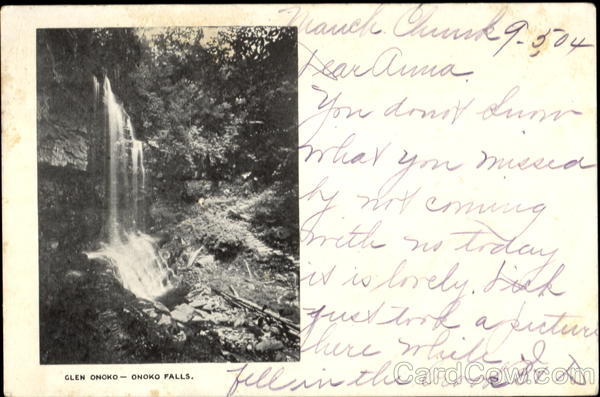 Mauch Chunk 9-5,04
Dear Anna.
You donot know
what you missed
by not coming
with us today
it is lovely. Dick
just took a picture
here while I
fell in the
GLEN ONOKO— ONOKO FALLS.
CardCow.com